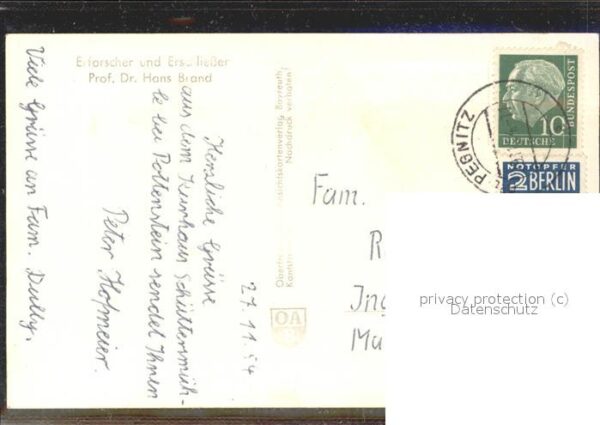 Erforscher und Erschließer
Prof. Dr. Hans Brand
27. 11. 54
Herzliche Grüsse
aus dem Kurhaus Schüttermüh-
le bei Pottenstein sendet Ihnen
Peter Hofmeier.
Viele Grüsse an Fam. Dully.
Nachdruck verboten!
OA
Fam.
R
Ing
Mü
10
DEUTSCHE
BUNDESPOST
PEGNITZ
NOTOPFER
2 BERLIN
privacy protection (c)
Datenschutz